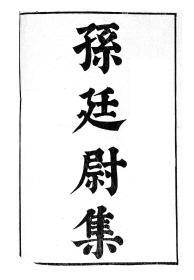 孫廷尉集